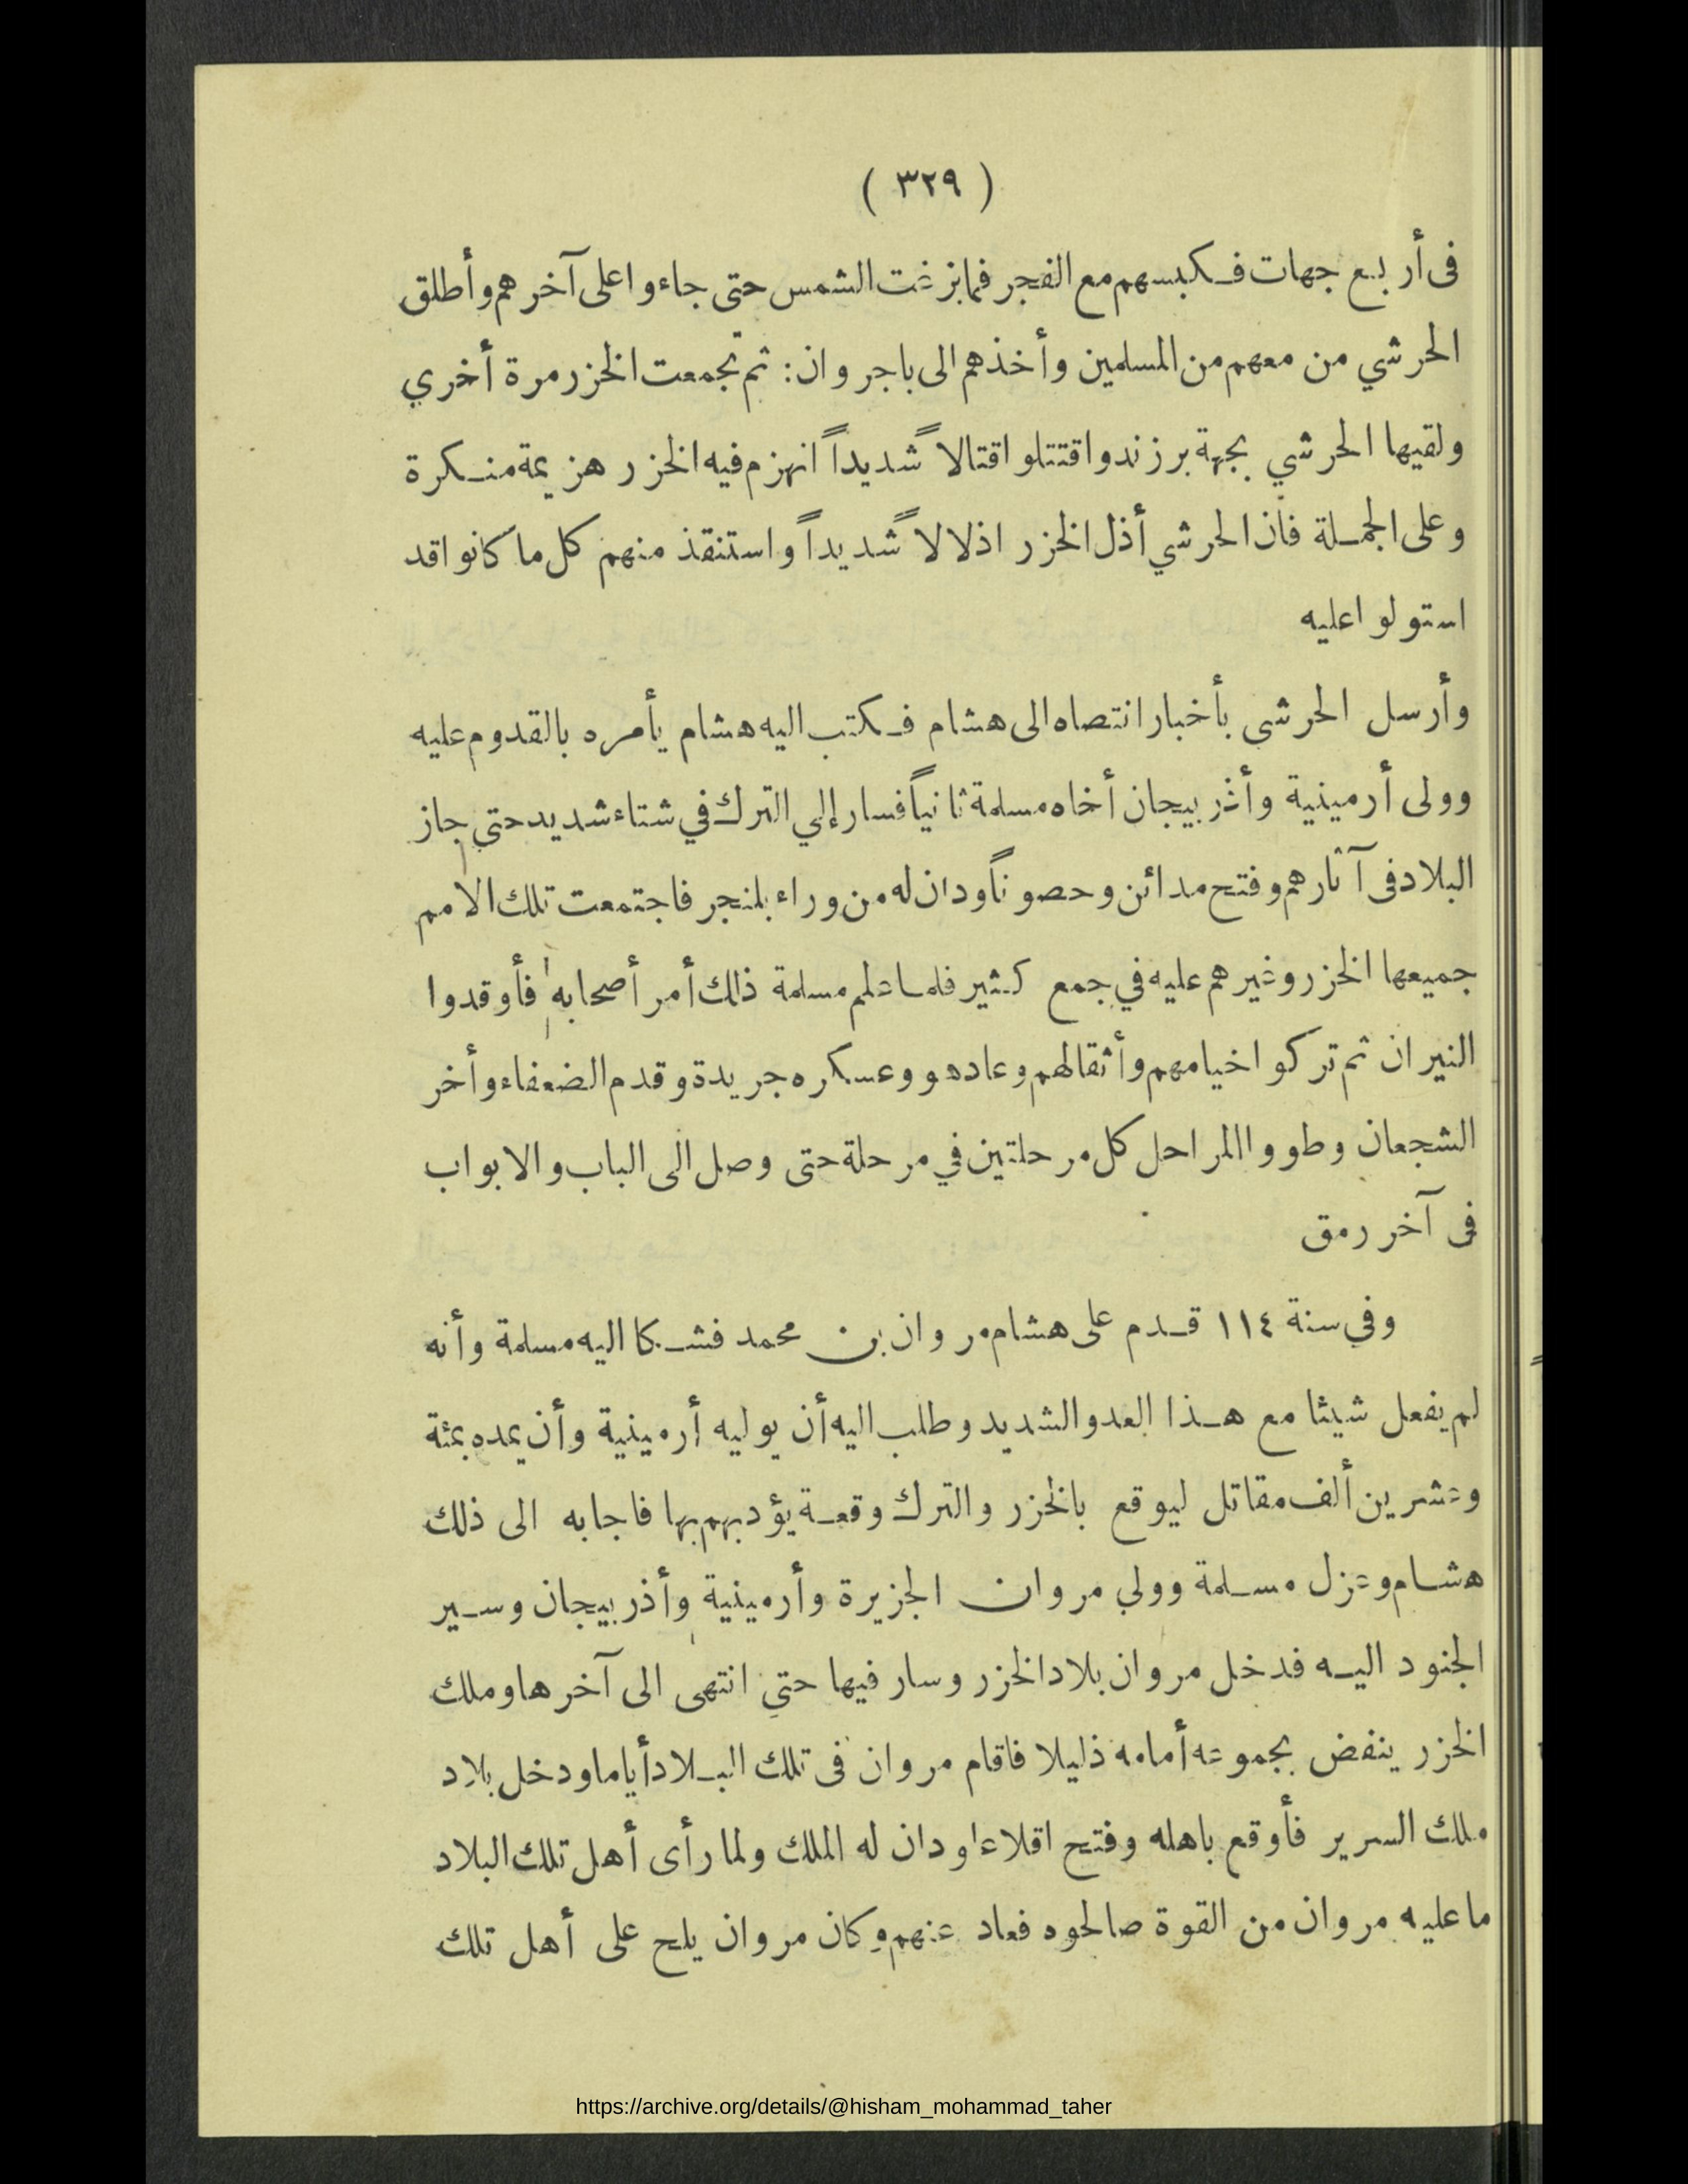 ( ٣٢٩ )
فى أربع جهات فكبسهم مع الفجر فما بزغت الشمس حتى جاءوا على آخرهم وأطلق
الحرشي من معهم من المسلمين وأخذهم الى باجروان: ثم تجمعت الخزر مرة أخري
ولقيها الحرشي بجهة برزند واقتتلوا قتالاً شديداً انهزم فيه الخزر هزيمة منكرة
وعلى الجملة فان الحرشي أذل الخزر اذلالاً شديداً واستنقذ منهم كل ما كانوا قد
استولوا عليه
وأرسل الحرشى بأخبار انتصاه الى هشام فكتب اليه هشام يأمره بالقدوم عليه
وولى أرمينية وأذربيجان أخاه مسلمة ثانياً فسار إلي الترك في شتاء شديد حتى جاز
البلاد فى آثارهم وفتح مدائن وحصوناً ودان له من وراء بلنجر فاجتمعت تلك الامم
جميعها الخزر وغيرهم عليه في جمع كثير فلما علم مسلمة ذالك أمر أصحابه فأوقدوا
النيران ثم تركوا خيامهم وأثقالهم وعاد هو وعسكره جريدة وقدم الضعفاء وأخر
الشجعان وطووا المراحل كل مرحلتين في مرحلة حتى وصل الى الباب والابواب
فى آخر رمق
وفي سنة ١١٤ قدم على هشام مروان بن محمد فشكا اليه مسلمة وأنه
لم يفعل شيئا مع هذا العدو الشديد وطلب اليه أن يوليه أرمينية وأن يمده بمئة
وعشرين ألف مقاتل ليوقع بالخزر والترك وقعة يؤدبهم بها فاجابه الى ذلك
هشام وعزل مسلمة وولي مروان الجزيرة وأرمينية وأذربيجان وسير
الجنود اليه فدخل مروان بلاد الخزر وسار فيها حتى انتهى الى آخرها وملك
الخزر ينفض بجموعه أمامه ذليلا فاقام مروان فى تلك البلاد أياما ودخل بلاد
ملك السرير فأوقع باهله وفتح اقلاعا ودان له الملك ولما رأى أهل تلك البلاد
ما عليه مروان من القوة صالحوه فعاد عنهم وكان مروان يلح على أهل تلك
https://archive.org/details/@hisham_mohammad_taher